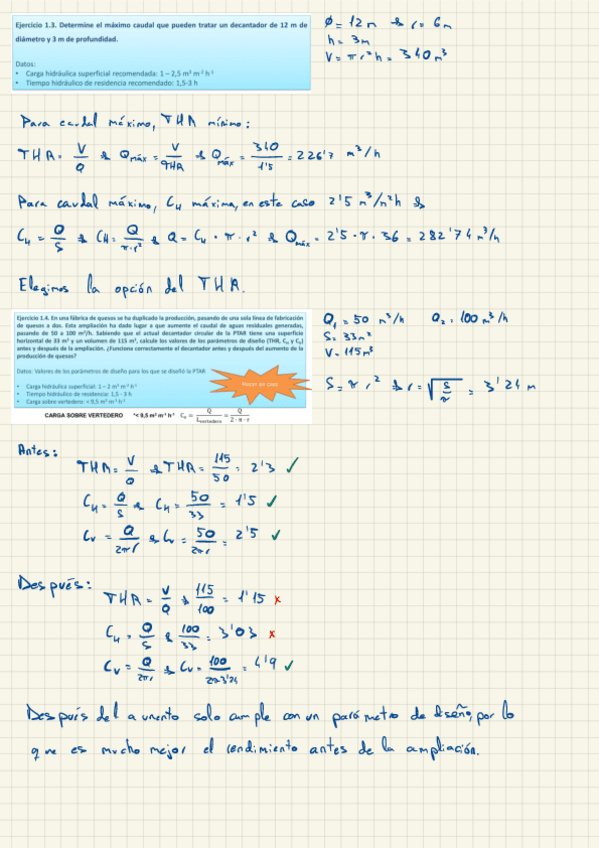 Ejercicio 1.3. Determine el máximo caudal que pueden tratar un decantador de 12 m de
diámetro y 3 m de profundidad.
Datos:
• Carga hidráulica superficial recomendada: 1 – 2,5 m³ m⁻² h⁻¹
• Tiempo hidráulico de residencia recomendado: 1,5-3 h
Ø = 12 m → r = 6 m
h = 3 m
V = π r² h = 340 m³
Para caudal máximo, THR mínimo:
THR = V/Q → Qmáx = V/THR → Qmáx = 340/1'5 = 226'7 m³/h
Para caudal máximo, CH máxima, en este caso 2'5 m³/m²h →
CH = Q/S → CH = Q/π·r² → Q = CH · π · r² → Qmáx = 2'5 · π · 36 = 282'74 m³/h
Elegimos la opción del THR.
Ejercicio 1.4. En una fábrica de quesos se ha duplicado la producción, pasando de una sola línea de fabricación
de quesos a dos. Esta ampliación ha dado lugar a que aumente el caudal de aguas residuales generadas,
pasando de 50 a 100 m³/h. Sabiendo que el actual decantador circular de la PTAR tiene una superficie
horizontal de 33 m² y un volumen de 115 m³, calcule los valores de los parámetros de diseño (THR, CH y CV)
antes y después de la ampliación. ¿Funciona correctamente el decantador antes y después del aumento de la
producción de quesos?
Datos: Valores de los parámetros de diseño para los que se diseñó la PTAR
• Carga hidráulica superficial: 1 – 2 m³ m⁻² h⁻¹
• Tiempo hidráulico de residencia: 1,5 - 3 h
• Carga sobre vertedero: < 9,5 m³ m⁻¹ h⁻¹
CARGA SOBRE VERTEDERO "< 9,5 m³ m⁻¹ h⁻¹ Cv = Q/Lvertedero = Q/2·π·r
Q₁ = 50 m³/h Q₂ = 100 m³/h
S = 33 m²
V = 115 m³
S = π r² → r = √(S/π) = 3'24 m
Antes:
THR = V/Q → THR = 115/50 = 2'3 ✓
CH = Q/S → CH = 50/33 = 1'5 ✓
CV = Q/2πr → CV = 50/2πr = 2'5 ✓
Después:
THR = V/Q → 115/100 = 1'15 ✗
CH = Q/S → 100/33 = 3'03 ✗
CV = Q/2πr → CV = 100/2π·3'24 = 4'9 ✓
Después del aumento solo cumple con un parámetro de diseño, por lo
que es mucho mejor el rendimiento antes de la ampliación.